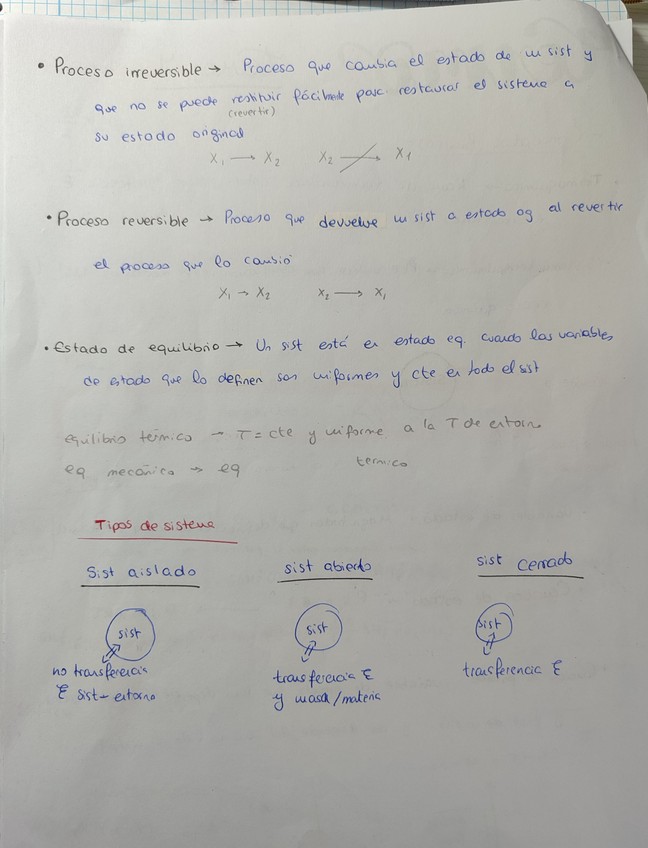 • Proceso irreversible → Proceso que cambia el estado de un sist y
que no se puede restituir fácilmente para restaurar el sistema a
(revertir)
su estado original
X₁ → X₂ X₂ → X₁
• Proceso reversible → Proceso que devuelve un sist a estado og al revertir
el proceso que lo cambió
X₁ → X₂ X₂ → X₁
• Estado de equilibrio → Un sist está en estado eq. cuando las variables
de estado que lo definen son uniformes y cte en todo el sist
equilibrio térmico → T = cte y uniforme a la T de entorno
eq mecánico → eq termico
Tipos de sistema
Sist aislado sist abierto sist cerrado
sist sist sist
no transferencia transferencia E transferencia E
E sist - entorno y masa/materia